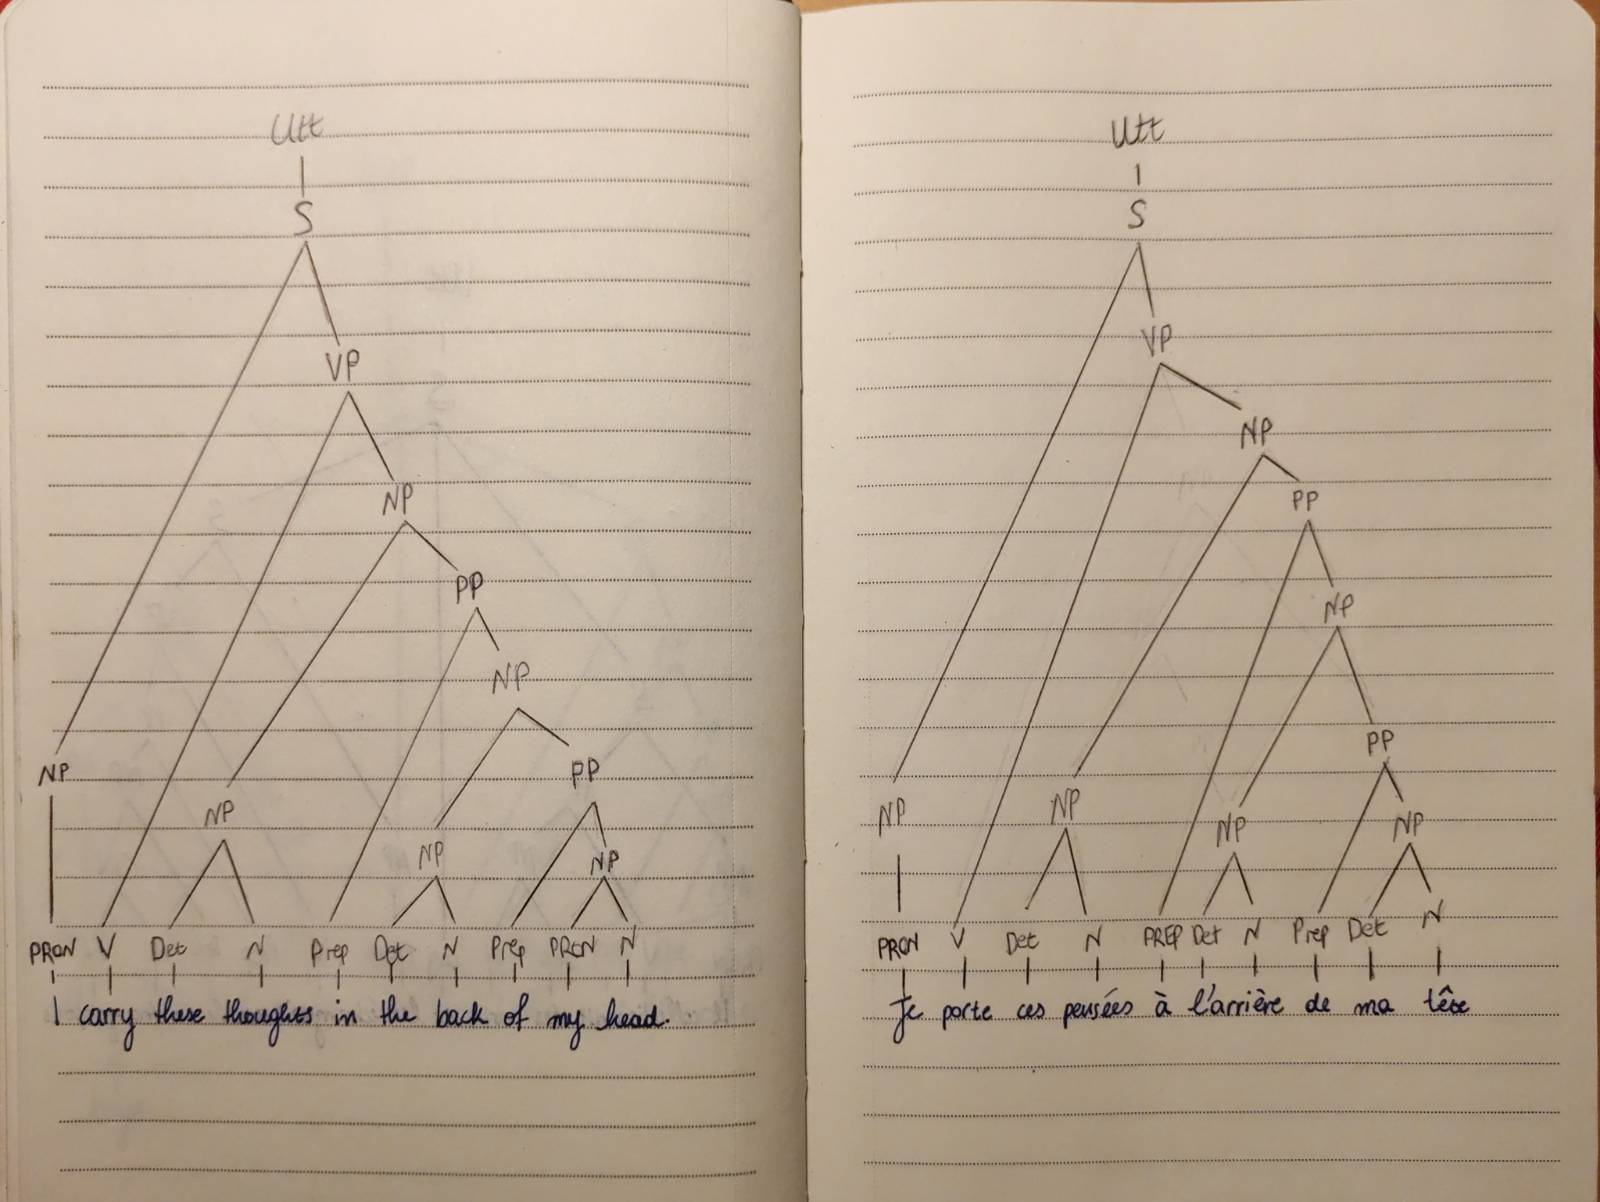 Utt
S
VP
NP
PP
NP
NP
PP
NP
NP
NP
PRON V Det N Prep Det N Prep PRON N
I carry these thoughts in the back of my head.
Utt
S
VP
NP
PP
NP
PP
NP
NP
NP
NP
PRON V Det N PREP Det N Prep Det N
Je porte ces pensées à l'arrière de ma tête